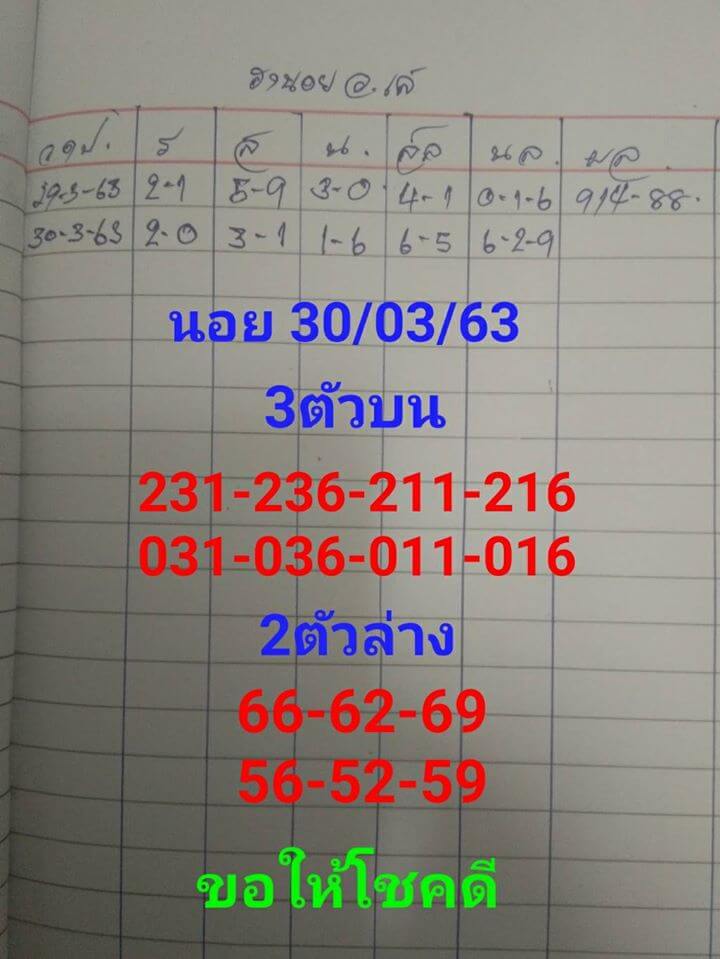 ฮานอย อ.เล่
วดป. ร ส น. ส่ล นล. ผล.
29-3-63 2-1 5-9 3-0 4-1 0-1-6 914-88.
30-3-63 2-0 3-1 1-6 6-5 6-2-9
นอย 30/03/63
3ตัวบน
231-236-211-216
031-036-011-016
2ตัวล่าง
66-62-69
56-52-59
ขอให้โชคดี